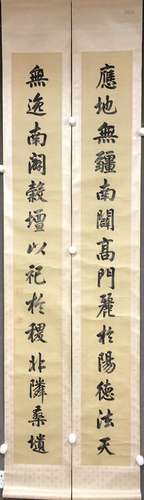 應地無疆南闢高門麗於陽德法天
無逸南闕穀壇以祀於稷北隣桑壝